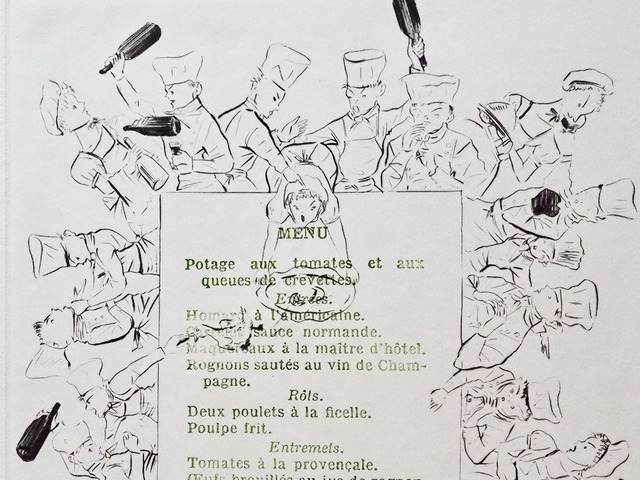 MENU
Potage aux tomates et aux
queues de crevettes.
Entrées.
Homard à l'américaine.
sauce normande.
Maquereaux à la maître d'hôtel.
Rognons sautés au vin de Cham-
pagne.
Rôts.
Deux poulets à la ficelle.
Poulpe frit.
Entremets.
Tomates à la provençale.
Œufs brouillés au jus de rognon